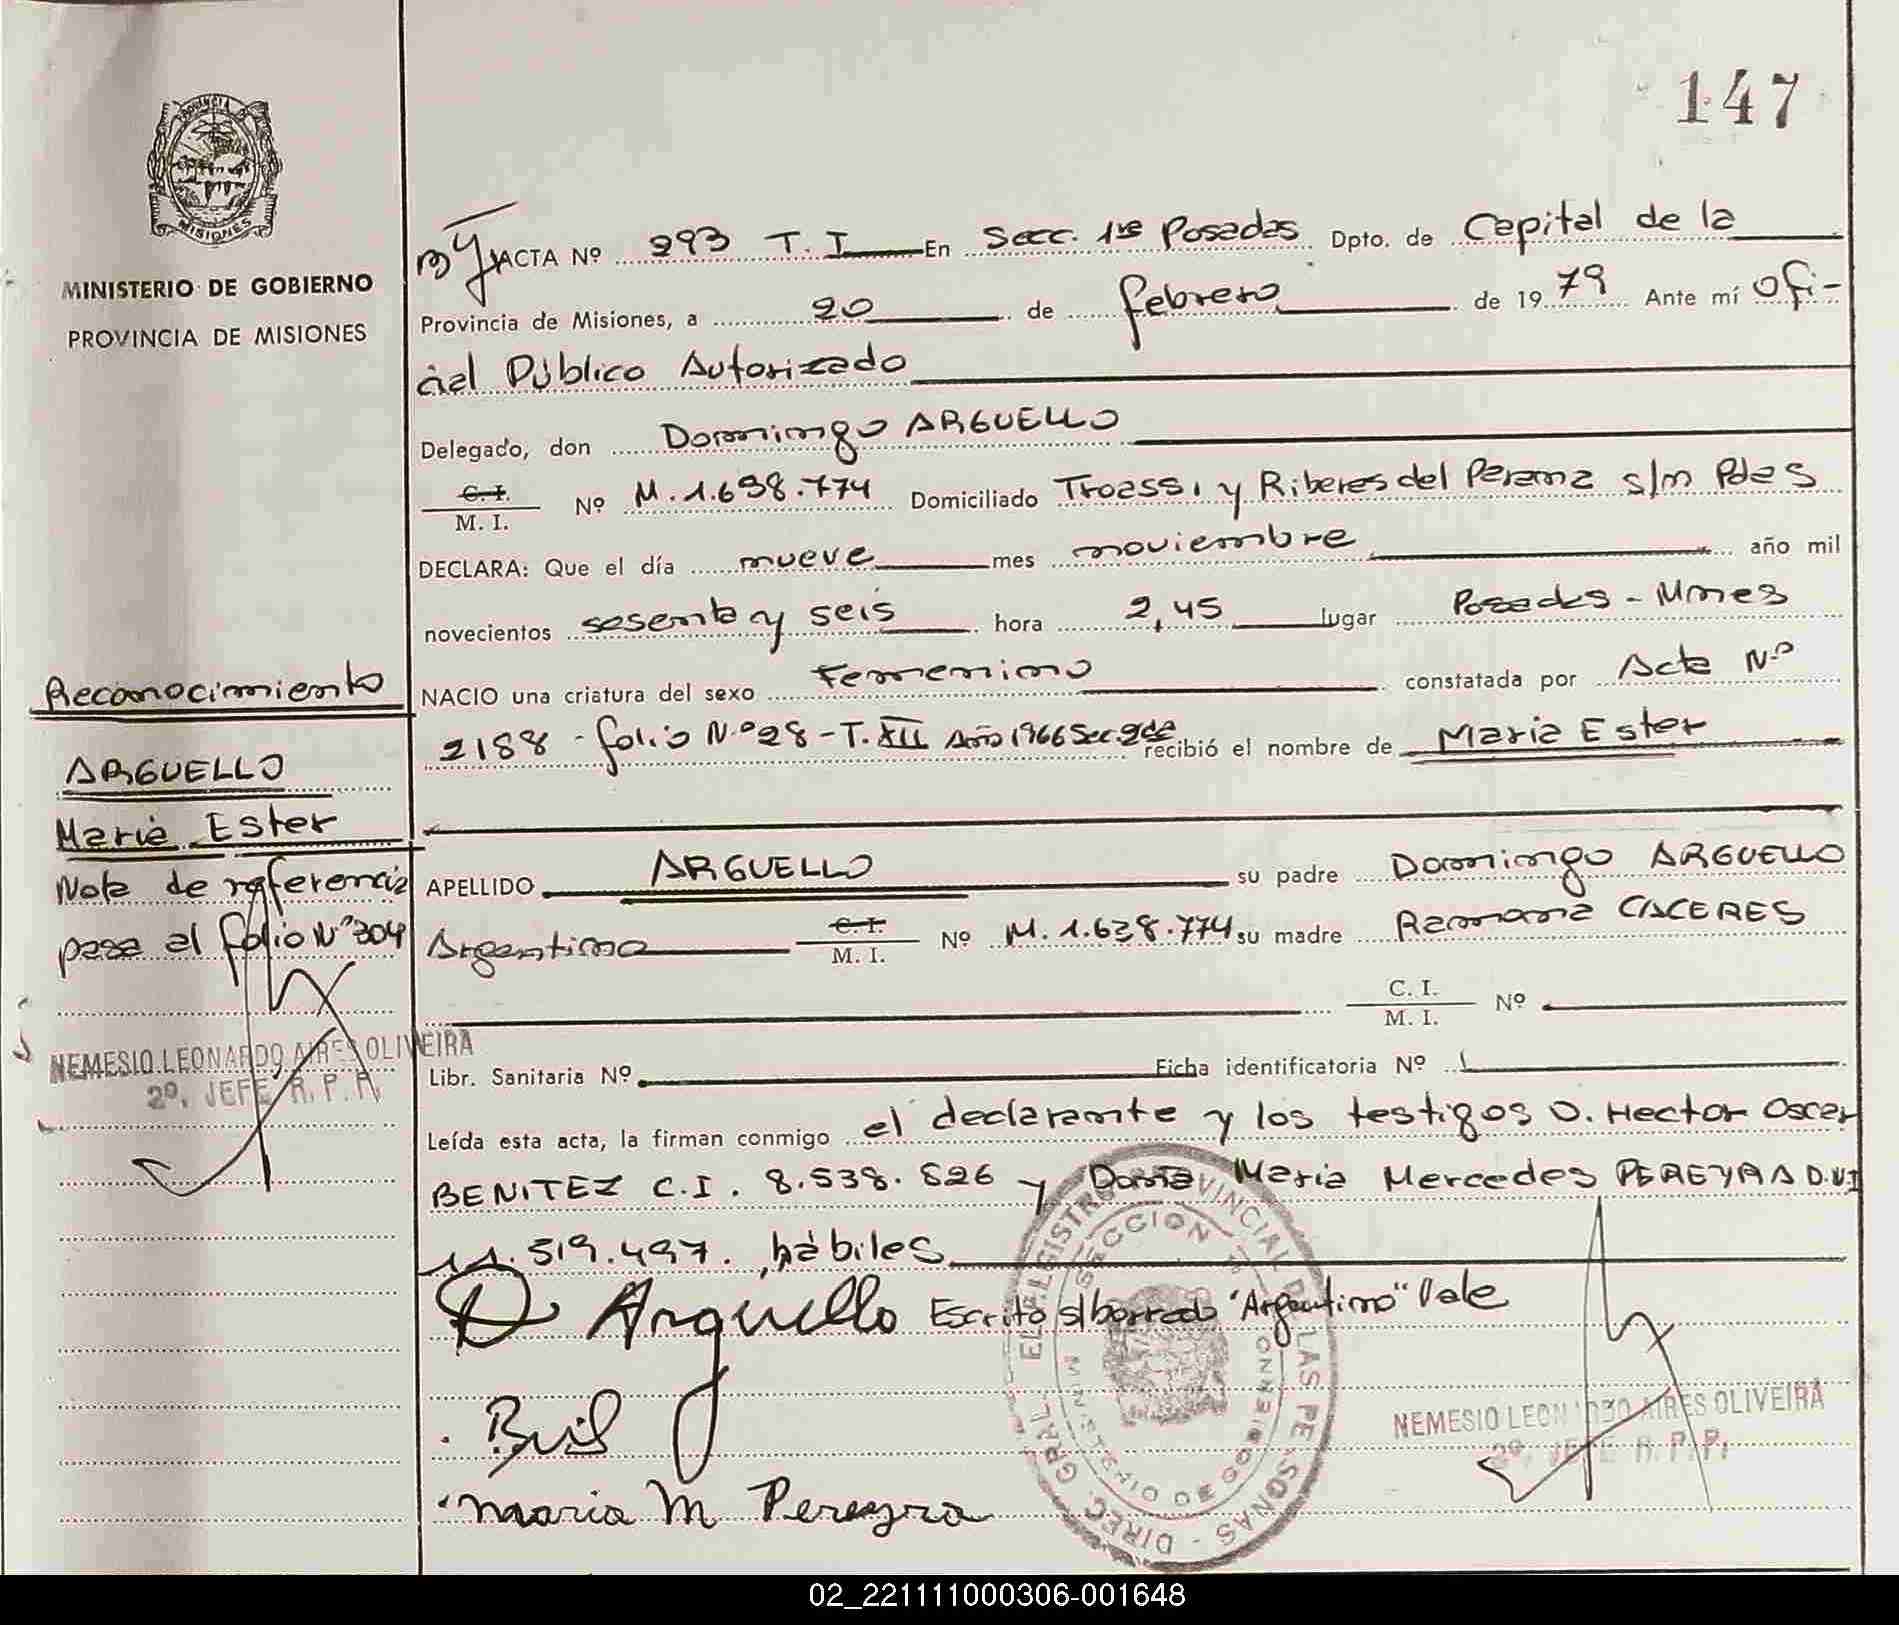 147
PROVINCIA DE
MISIONES
MINISTERIO DE GOBIERNO
PROVINCIA DE MISIONES
ACTA Nº 293 T. I En Secc. 1ra Posadas Dpto. de Capital de la
Provincia de Misiones, a 20 de febrero de 1979 Ante mí Ofi-
cial Público Autorizado
Delegado, don Domingo ARGUELLO
C. I.
M. I. Nº M.1.638.774 Domiciliado Troassi y Riberas del Parana s/n Pdas
DECLARA: Que el día nueve mes noviembre año mil
novecientos sesenta y seis hora 2,45 lugar Posadas - Mnes
NACIO una criatura del sexo Femenino constatada por Acta Nº
2188 - folio Nº 28 - T. XII Año 1966 Sec. 2da recibió el nombre de Maria Ester
APELLIDO ARGUELLO su padre Domingo ARGUELLO
Argentino C. I.
M. I. Nº M.1.638.774 su madre Ramona CACERES
C. I.
M. I. Nº
Libr. Sanitaria Nº Ficha identificatoria Nº
Leída esta acta, la firman conmigo el declarante y los testigos D. Hector Oscar
BENITEZ C.I. 8.538.826 y Doña Maria Mercedes PEREYRA D.N.I
11.519.497. hábiles
D Arguello Escrito s/borrado "Argentino" Vale
Maria M Pereyra
Reconocimiento
ARGUELLO
Maria Ester
Nota de referencia
pasa al folio Nº 304
NEMESIO LEONARDO AIRES OLIVEIRA
2º. JEFE R. P. P.
DIREC. GRAL. DEL REGISTRO PROVINCIAL DE LAS PERSONAS
SECCION
MINISTERIO DE GOBIERNO
NEMESIO LEONARDO AIRES OLIVEIRA
2º. JEFE R. P. P.
02_221111000306-001648